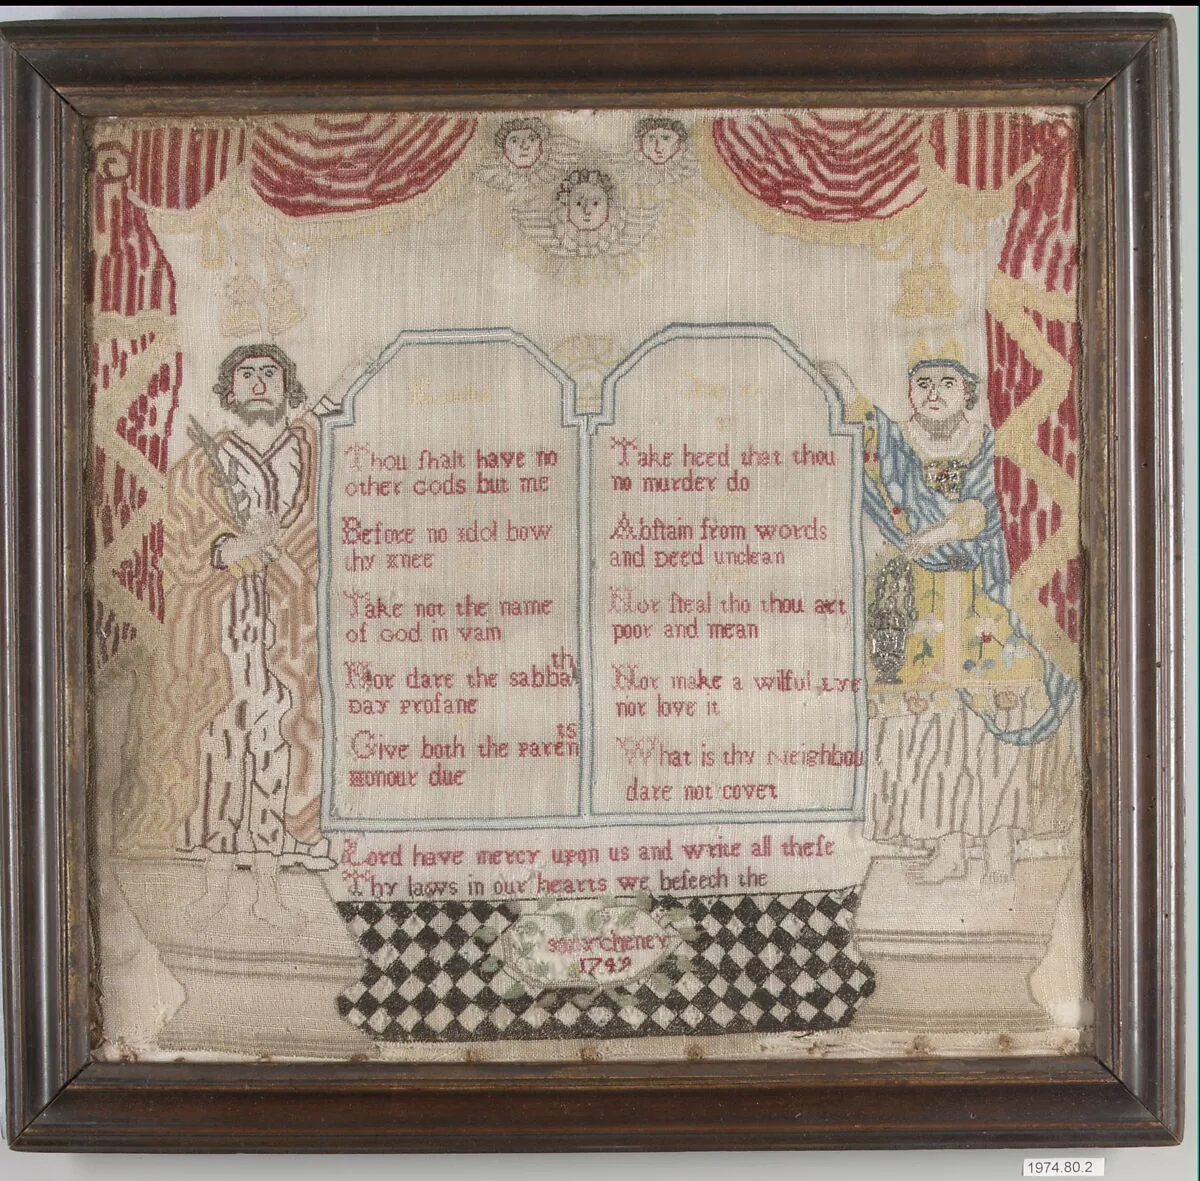 Thou ſhalt have no
other Gods but me
Before no Idol bow
thy Knee
Take not the name
of God in vain
Nor dare the sabbath
Day Profane
Give both the Parents
Honour due
Take heed that thou
no murder do
Abſtain from words
and Deed unclean
Nor ſteal tho thou art
poor and mean
Nor make a wilful Lye
nor love it
What is thy Neighbou
dare not covet
Lord have mercy upon us and write all theſe
Thy laws in our hearts we beſeech the
Mary Cheney
1749
1974.80.2